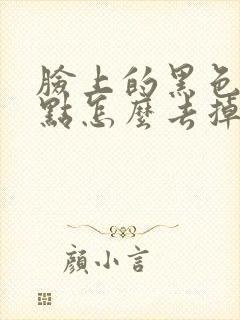 臉上的黑色
點怎麼去掉
顏小言